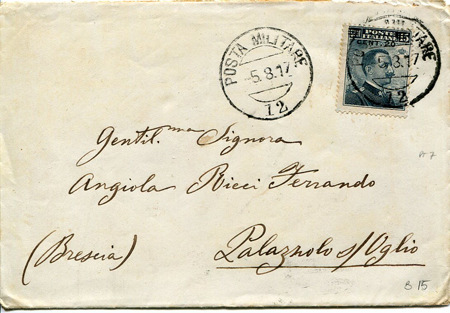 POSTA MILITARE
-5.8.17
12
POSTE
ITALIANE
15
-5.8.17
12
Gentil.ma Signora
Angiola Ricci Ferrando
(Brescia) Palazzolo s/Oglio
B 15